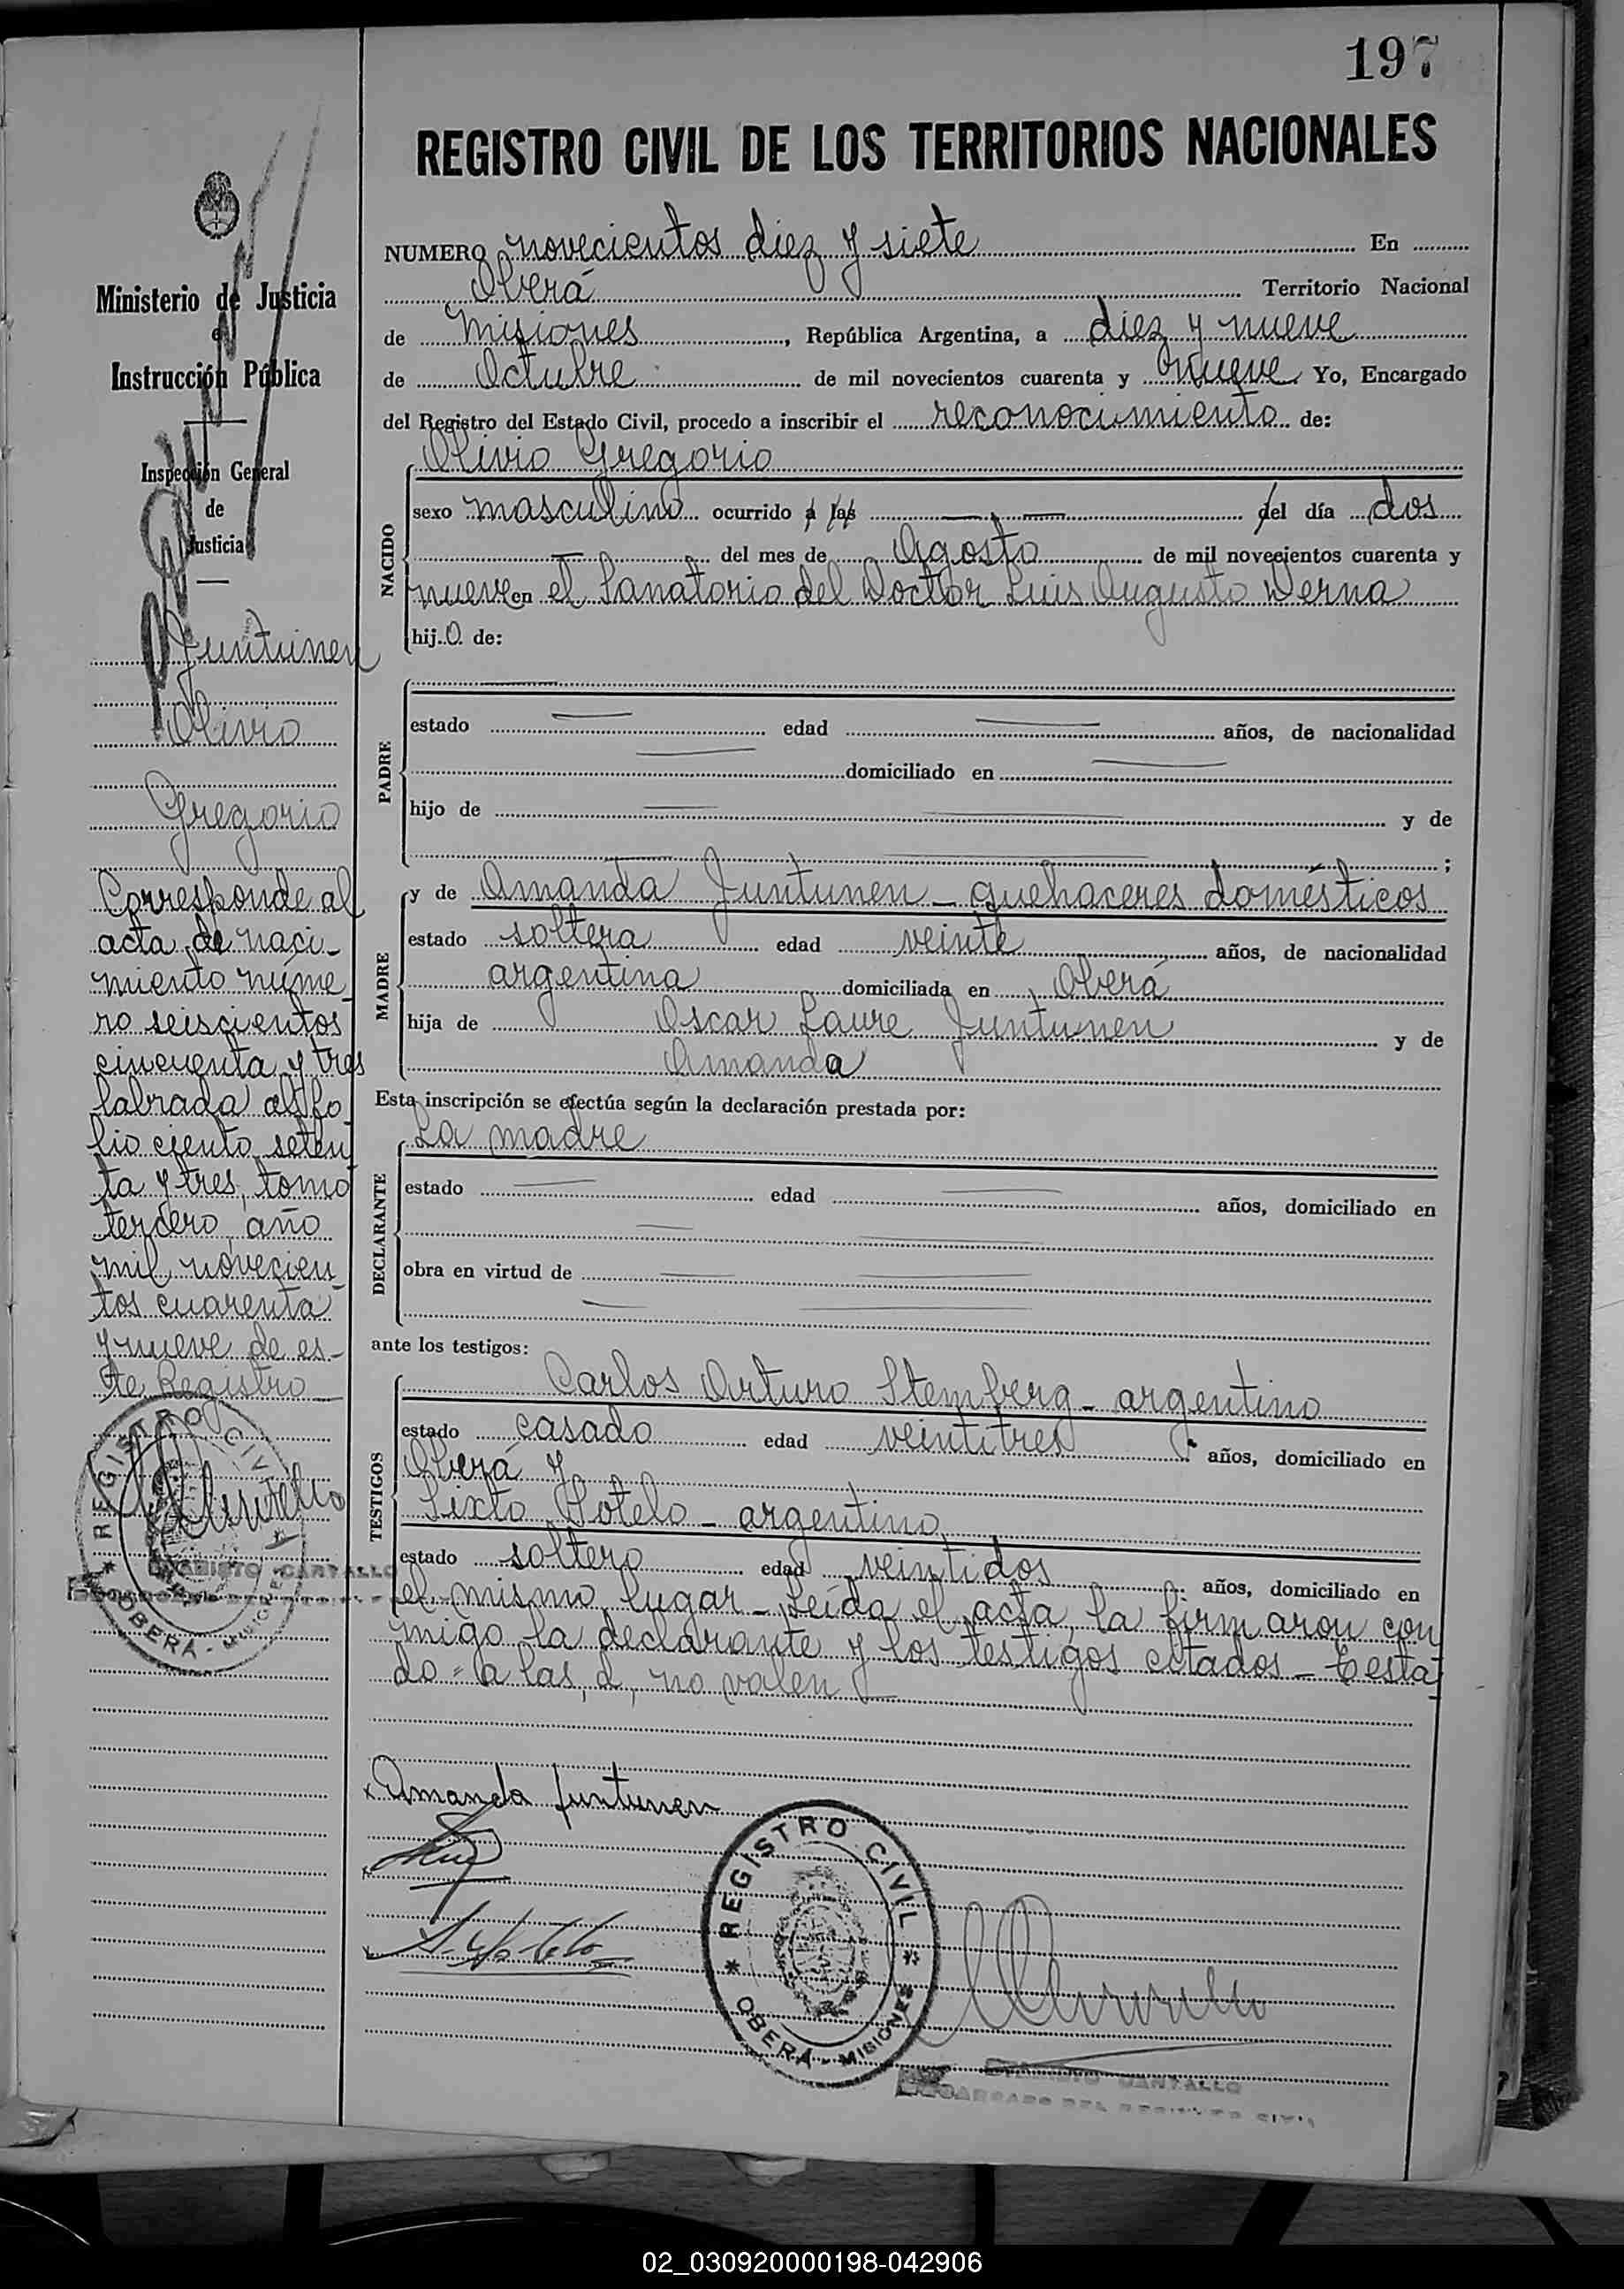 197
REGISTRO CIVIL DE LOS TERRITORIOS NACIONALES
NUMERO novecientos diez y siete En
Oberá Territorio Nacional
de Misiones, República Argentina, a diez y nueve
de Octubre de mil novecientos cuarenta y nueve Yo, Encargado
del Registro del Estado Civil, procedo a inscribir el reconocimiento de:
Olivio Gregorio
NACIDO
sexo masculino ocurrido a las del día dos
del mes de Agosto de mil novecientos cuarenta y
nueve en el Sanatorio del Doctor Luis Augusto Derna
hij.o de:
PADRE
estado edad años, de nacionalidad
domiciliado en
hijo de y de
;
MADRE
y de Amanda Juntunen - quehaceres domésticos
estado soltera edad veinte años, de nacionalidad
argentina domiciliada en Oberá
hija de Oscar Laure Juntunen y de
Amanda
Esta inscripción se efectúa según la declaración prestada por:
La madre
DECLARANTE
estado edad años, domiciliado en
obra en virtud de
ante los testigos:
TESTIGOS
Carlos Arturo Stemberg - argentino
estado casado edad veintitres años, domiciliado en
Oberá y
Sixto Sotelo - argentino
estado soltero edad veintidos años, domiciliado en
el mismo lugar - Leída el acta, la firmaron con
migo la declarante y los testigos citados - Testa-
do = a las, d, no valen
Amanda Juntunen
REGISTRO CIVIL
OBERÁ - MISIONES
CARTALLO
ENCARGADO DEL REGISTRO CIVIL
Ministerio de Justicia
e
Instrucción Pública
Inspección General
de
Justicia
Juntunen
Olivio
Gregorio
Corresponde al
acta de naci-
miento núme-
ro seiscientos
cincuenta y tres
labrada al fo
lio ciento seten
ta y tres, tomo
tercero, año
mil novecien-
tos cuarenta
y nueve de es-
te Registro
REGISTRO CIVIL
OBERÁ - MISIONES
CARTALLO
02_030920000198-042906